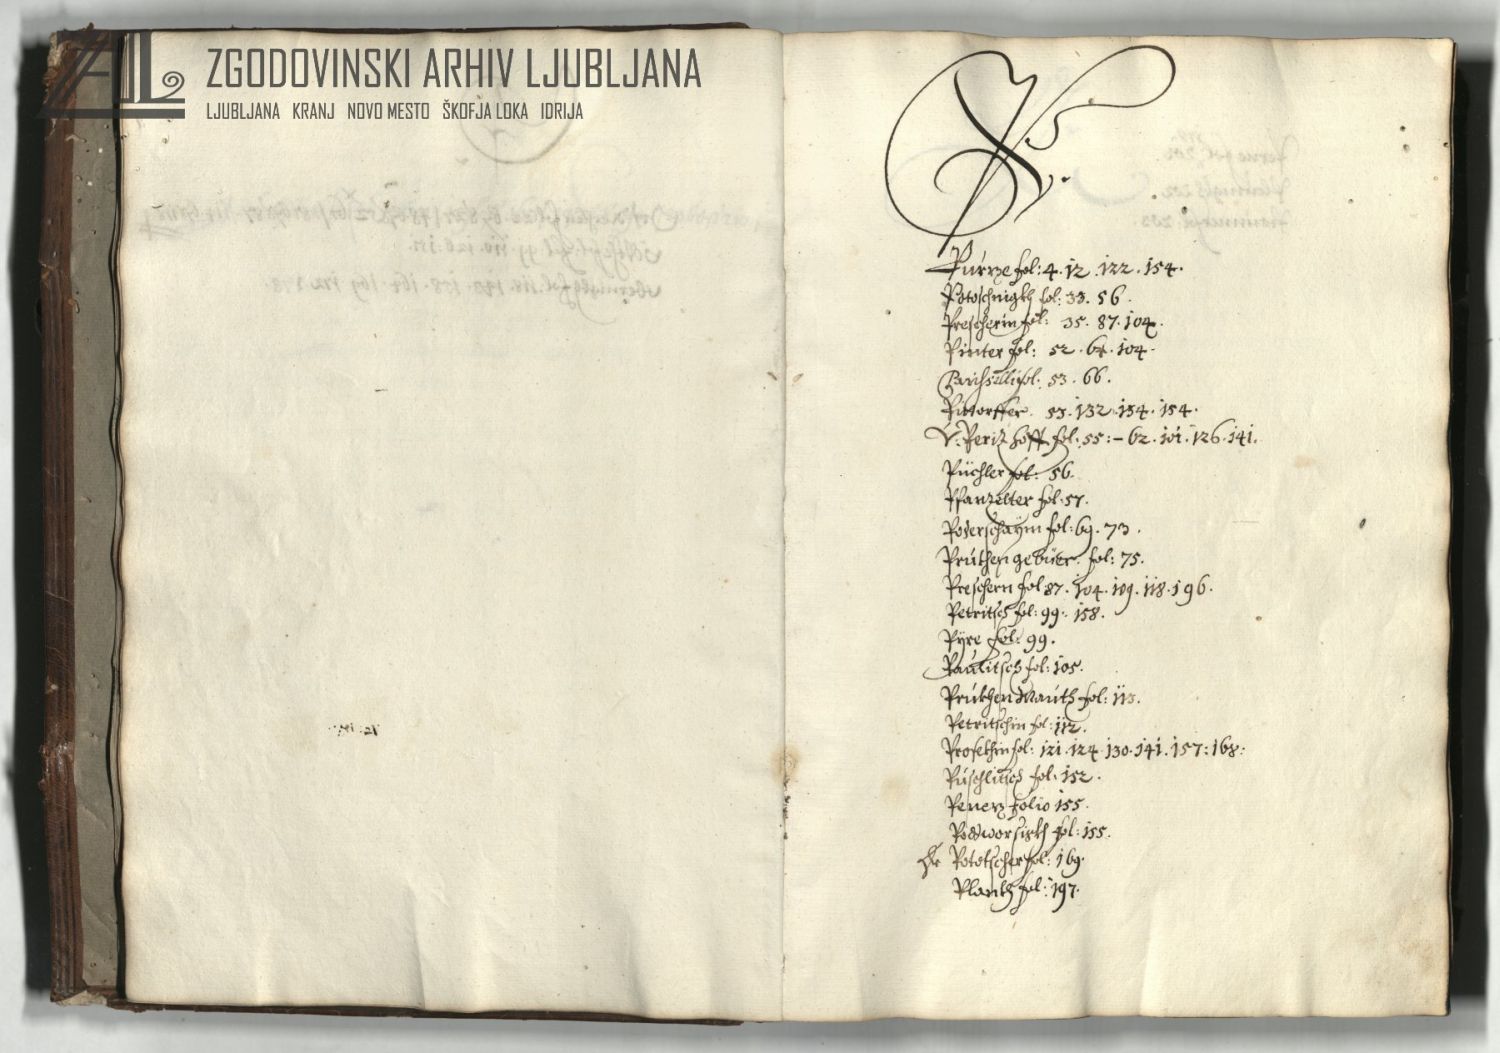 ZGODOVINSKI ARHIV LJUBLJANA
LJUBLJANA KRANJ NOVO MESTO ŠKOFJA LOKA IDRIJA
P.
Púrrze fol: 4. 12. 122. 154.
Potoschnigkh fol: 33. 56.
Prescherin fol: 35. 87. 104.
Pinter fol: 52. 64. 104.
fol. 53. 66.
53. 132. 154. 154.
V: Peritzhoff fol: 55:- 62. 101. 126. 141.
Püchler fol: 56.
Pfanzelter fol. 57.
Poderschaÿm fol: 69. 73.
fol: 75.
Preschern fol 87. 104. 109. 118. 196.
Petritsch fol: 99. 158.
Pÿre fol: 99.
Paulitsch fol: 105.
Prukhen Mauth fol: 113.
Petritschin fol: 112.
fol: 121. 124. 130. 141. 157: 168:
Púschlitsch fol: 152.
Penerz folio 155.
Podworsiskh fol: 155.
De Pototscher fol: 169.
fol: 197.